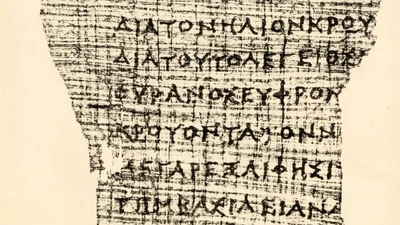 ΔΙΑΤΟΝΗΛΙΟΝΚΡΟΥ
ΔΙΑΤΟΥΤΟΛΕΓΕΙΟΣ
ΥΡΑΝΟΣΕΥΦΡΟΝ
ΚΡΟΥΟΝΤΑΤΟΝΝ
ΓΑΡΕΞΑΙΦΗΣΙ
ΜΒΑΣΙΛΕΙΑΝΑ